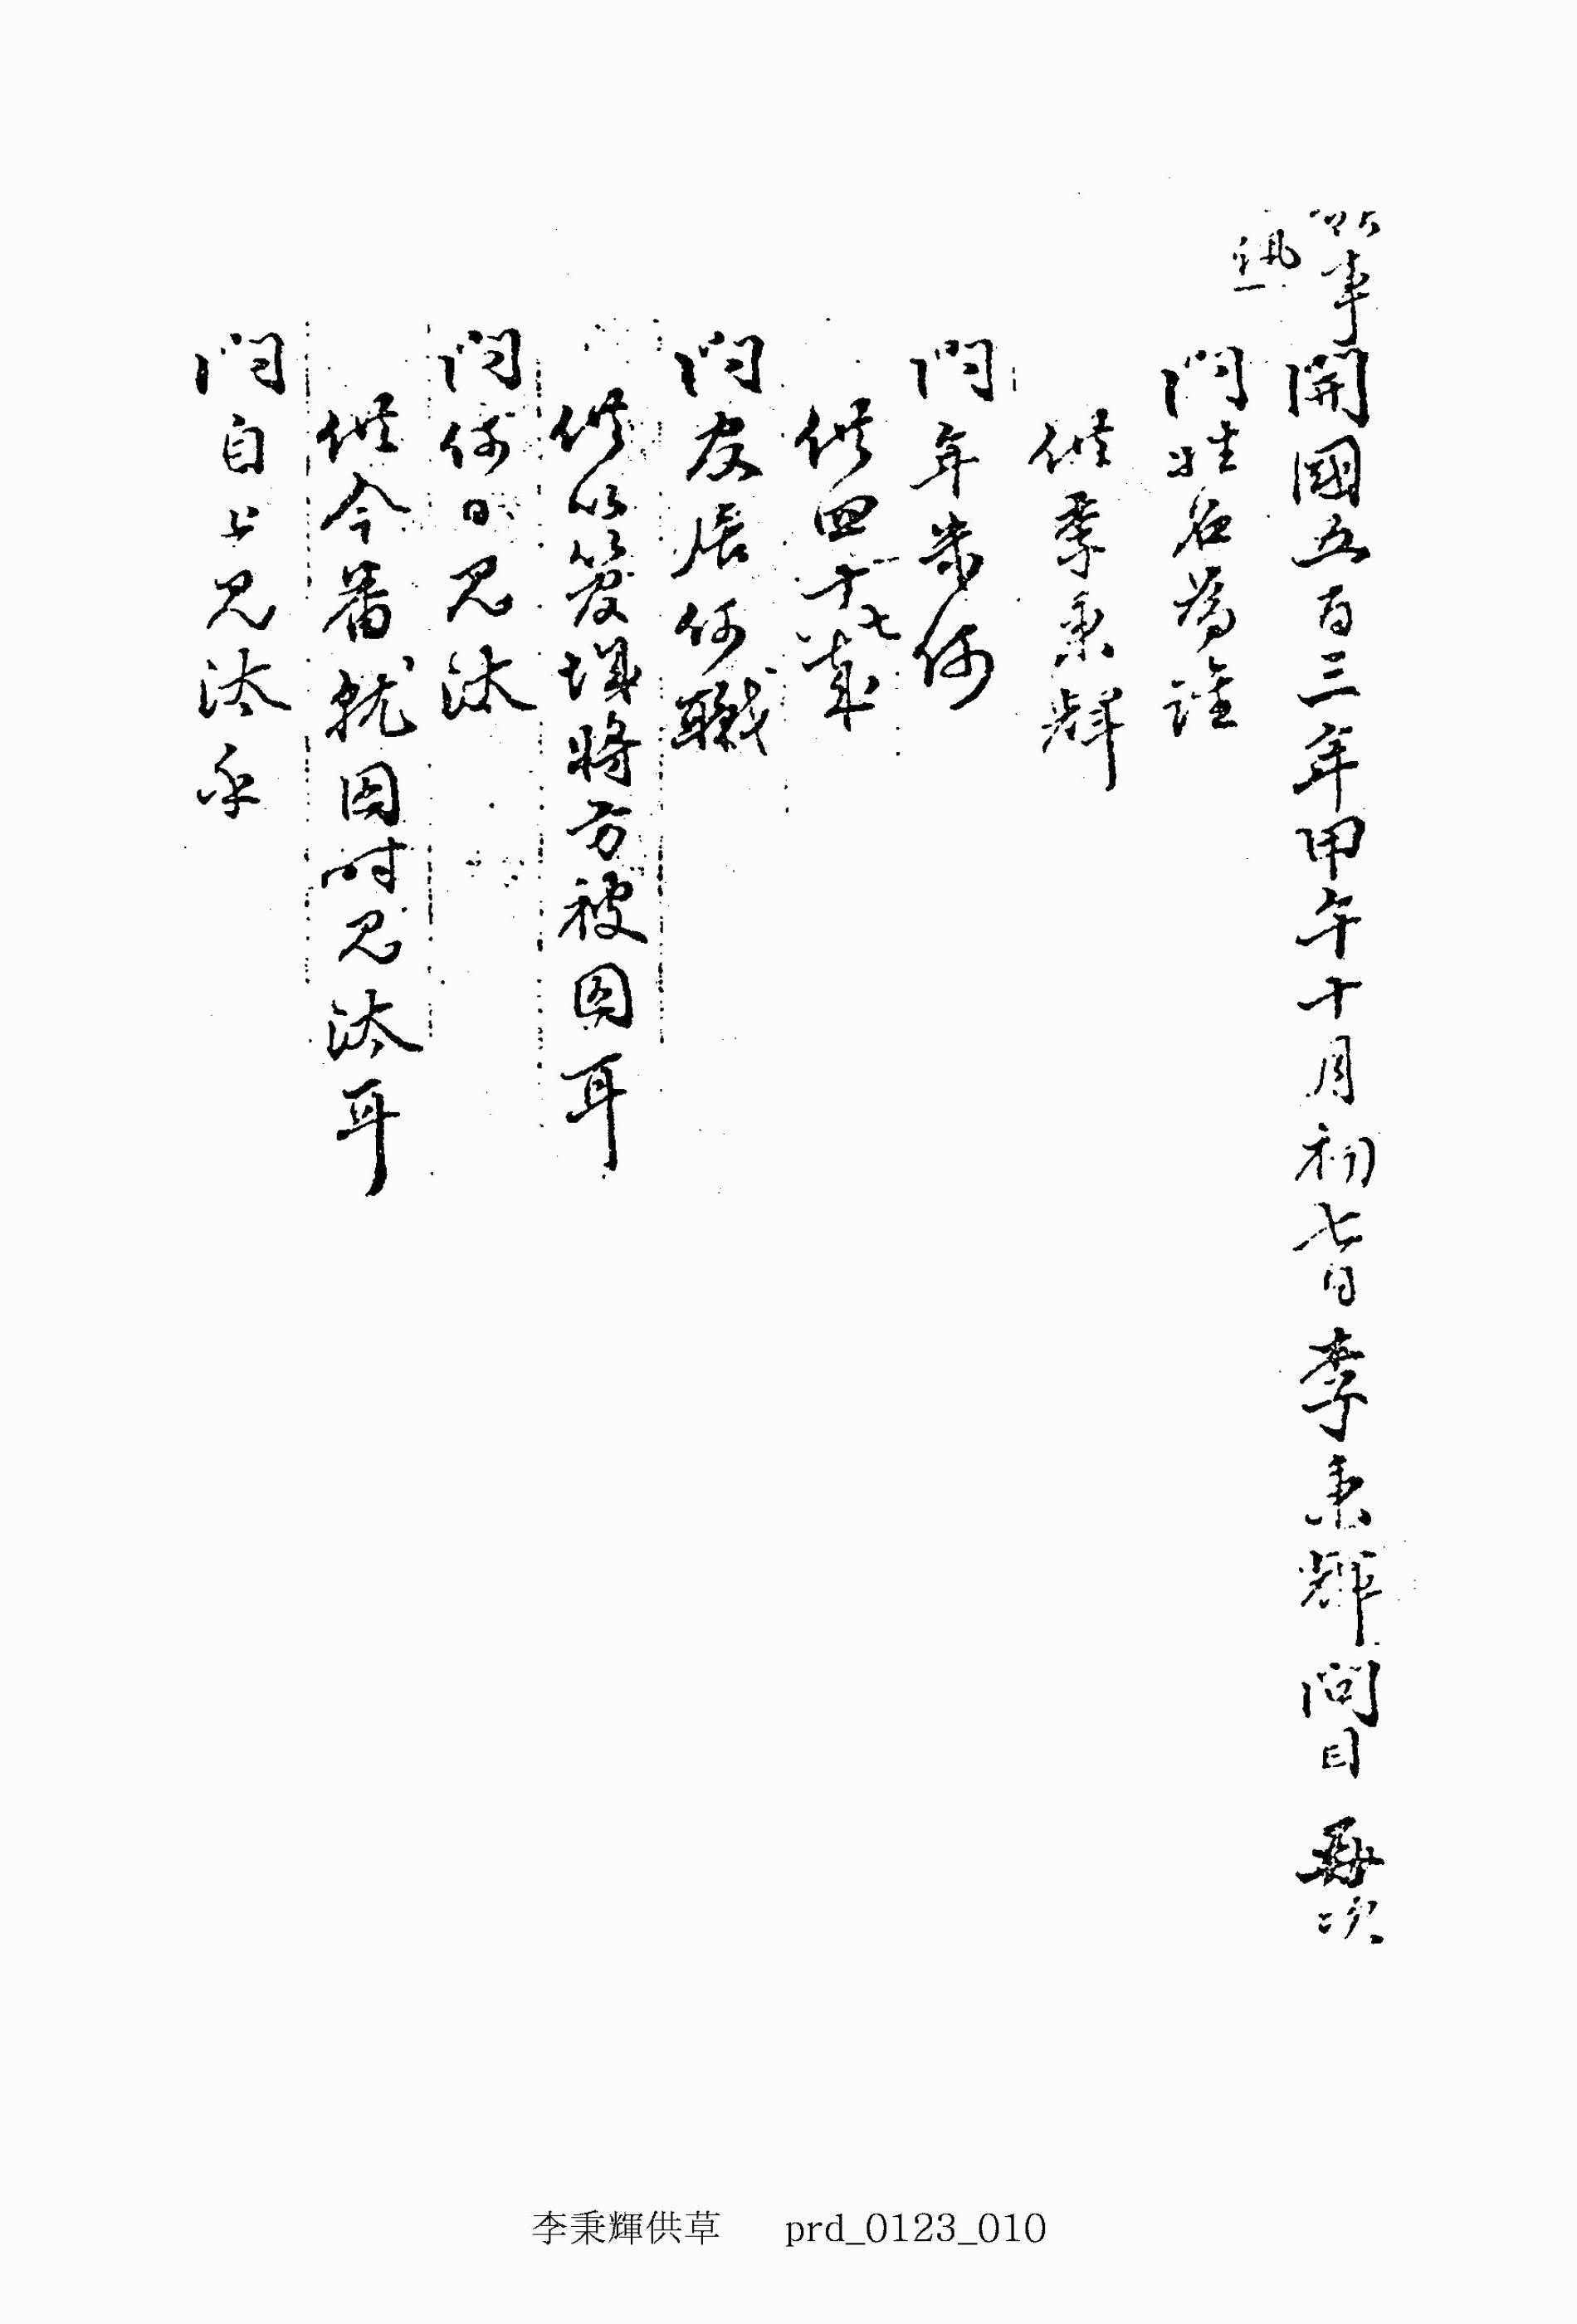 開國五百三年甲午十月初七日李秉輝問目 再次
問姓名爲誰
供李秉輝
問年幾何
供四十七歲
問官居何職
供以管城將方被囚耳
問何日見汰
供今番就囚時見汰耳
問自上見汰乎
李秉輝供草 prd_0123_010